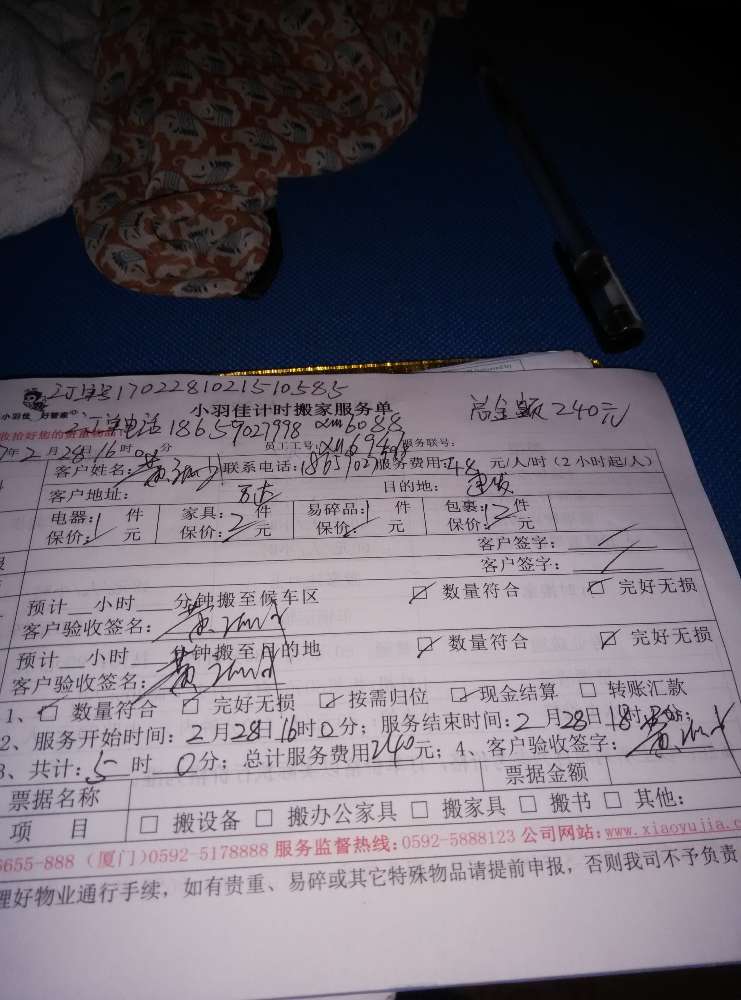 订单号1702281021510585
小羽佳 好管家
小羽佳计时搬家服务单
总金额240元
订单电话18659027998 xm6088
年2月28日16时0分 员工工号: xm6948 服务联号:
客户姓名: 黄 联系电话: 18659027 服务费用: 48 元/人/时（2小时起/人）
客户地址: 万达 目的地: 建发
电器: 1 件 家具: 2 件 易碎品: 1 件 包裹: 12 件
保价: 元 保价: 元 保价: 元 保价: 元
客户签字:
客户签字:
预计__小时___分钟搬至候车区 ☑ 数量符合 ☑ 完好无损
客户验收签名: 黄
预计__小时 分钟搬至目的地 ☑ 数量符合 ☑ 完好无损
客户验收签名: 黄
1、☑ 数量符合 ☑ 完好无损 ☑ 按需归位 ☑ 现金结算 □ 转账汇款
2、服务开始时间: 2月28日16时0分; 服务结束时间: 2月28日18时 分;
3、共计: 5 时 0分; 总计服务费用240元; 4、客户验收签字: 黄
票据名称 票据金额
项 目 □ 搬设备 □ 搬办公家具 □ 搬家具 □ 搬书 □ 其他:
6655-888（厦门）0592-5178888 服务监督热线: 0592-5888123 公司网站: www.xiaoyujia.c
理好物业通行手续，如有贵重、易碎或其它特殊物品请提前申报，否则我司不予负责